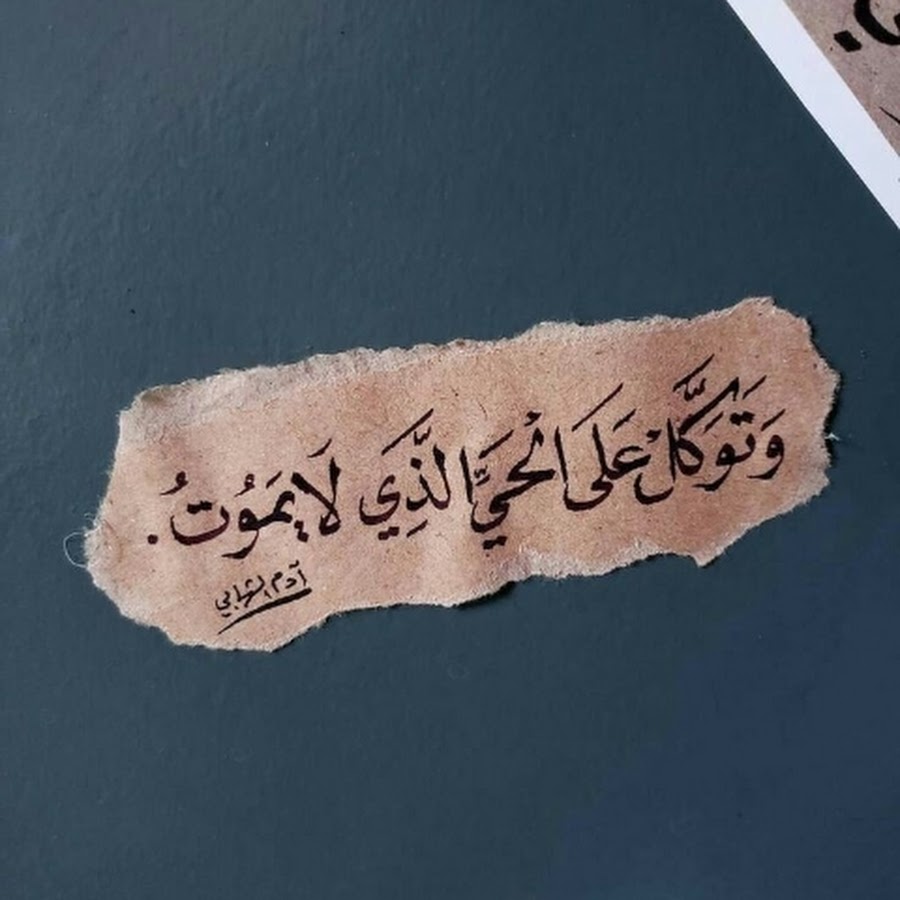 وَتَوَكَّلْ عَلَى الْحَيِّ الَّذِي لَا يَمُوتُ.
آدم الشهابي